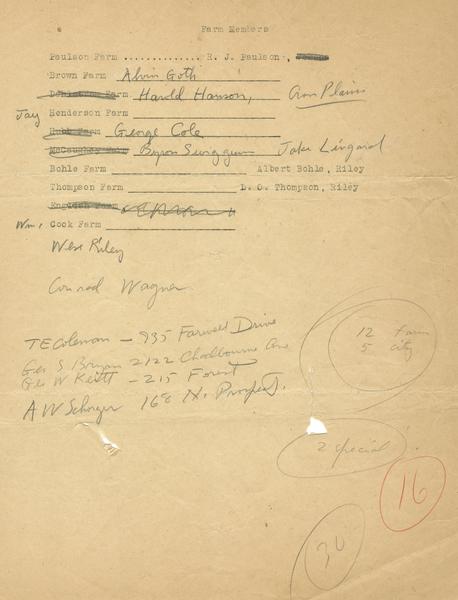 Farm Members
Paulson Farm .............. R. J. Paulson,
Brown Farm Alvin Goth
Farm Harold Hanson, Plains
Jay Henderson Farm
Farm George Cole
Byron Jake Lingard
Bohle Farm Albert Bohle, Riley
Thompson Farm D. O. Thompson, Riley
English Farm
Wm. Cook Farm
West Riley
Conrad Wagner
T E Coleman - 935 Farwell Drive
Geo S Bryan 2122 Chadbourne Ave
Geo W Keitt - 215 Forest
A W Schorger 168 N. Prospect.
12 farm
5 city
2 special
16
30